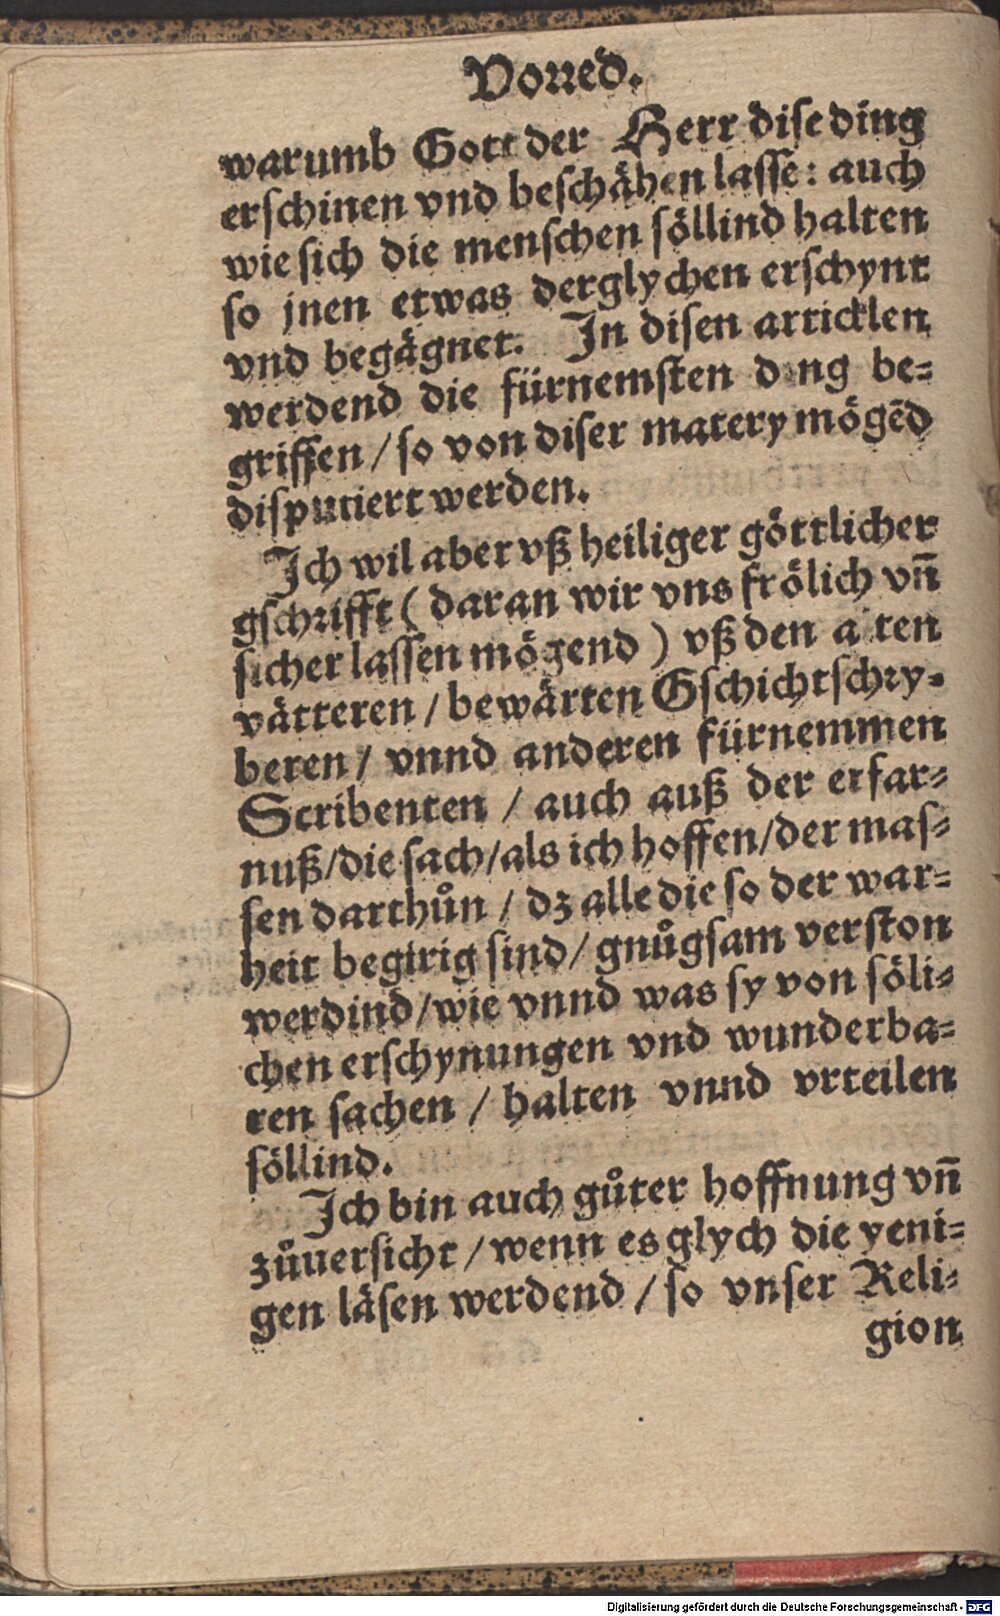 Vorred.
warumb Gott der Herr dise ding
erschinen vnd beschähen lasse: auch
wie sich die menschen söllind halten
so jnen etwas derglychen erschynt
vnd begägnet. In disen articklen
werdend die fürnemsten ding be-
griffen / so von diser matery mögẽd
disputiert werden.
Ich wil aber vß heiliger göttlicher
gschrifft ( daran wir vns frölich vñ
sicher lassen mögend ) vß den alten
vätteren / bewärten Gschichtschry-
beren / vnnd anderen fürnemmen
Scribenten / auch auß der erfar-
nuß/die sach/als ich hoffen/der mas-
sen darthůn / dz alle die so der war-
heit begirig sind/ gnůgsam verston
werdind/wie vnnd was sy von söli-
chen erschynungen vnd wunderba-
ren sachen / halten vnnd vrteilen
söllind.
Ich bin auch gůter hoffnung vñ
zůuersicht / wenn es glych die yeni-
gen läsen werdend / so vnser Reli-
gion
Digitalisierung gefördert durch die Deutsche Forschungsgemeinschaft - DFG